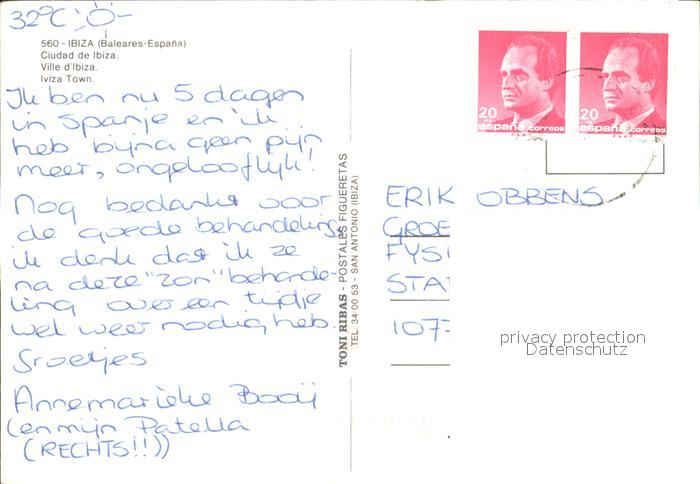 32°C
560 - IBIZA (Baleares-España)
Ciudad de Ibiza.
Ville d'Ibiza.
Iviza Town.
Ik ben nu 5 dagen
in Spanje en ik
heb bijna geen pijn
meer, ongelooflijk!
Nog bedankt voor
de goede behandelings
ik denk dat ik ze
na deze "zon" behande-
ling over een tijdje
wel weer nodig heb.
Groetjes
Annemarieke Booij
(en mijn Patella
(RECHTS!!))
TONI RIBAS - POSTALES FIGUERETAS
TEL. 34 00 53 - SAN ANTONIO (IBIZA)
20
PTS
españa correos
F.N.M.T.
20
PTS
españa correos
F.N.M.T.
ERIK OBBENS
GROE
FYSI
STA
107
privacy protection
Datenschutz